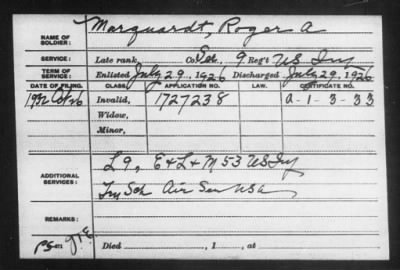 Marquardt, Roger A
NAME OF SOLDIER:
SERVICE: Late rank, Co. Sch. 9 Reg't US Inf
TERM OF SERVICE: Enlisted July 29, 1926 Discharged July 29, 1926
DATE OF FILING. CLASS. APPLICATION NO. LAW. CERTIFICATE NO.
1932 Oct 26 Invalid, 1727238 A-1-3-33
Widow,
Minor,
ADDITIONAL SERVICES: L 9, E & L & M 53 US Inf
Sch Air Ser USA
REMARKS:
Died , 1 , at